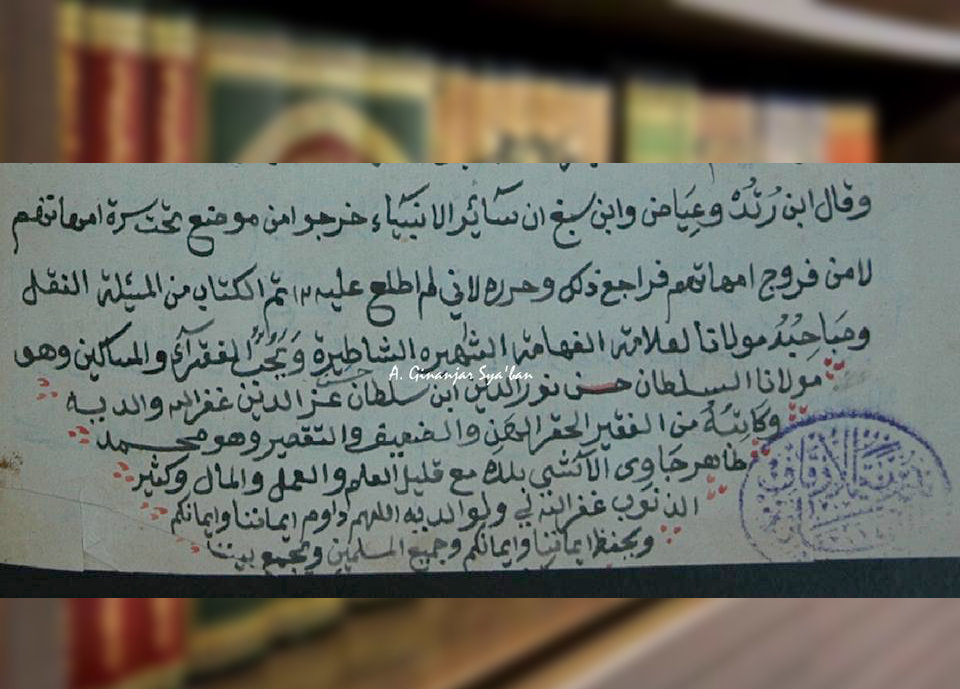 وقال ابن رُشْد وعِيَاض وابن سبع ان سَائر الانبيَاء خرجوا من موضع تحت سرة امهاتهم
لا من فروج امهاتهم فراجع ذلك وحرره لاني لم اطلع عليه تم الكتاب من المسئلة النقل
وصَاحِبُهُ مولانا لعلامة الفهامة الشهيره الشاطِرة وَيُحِبُّ الفقرآء والمساكين وهو
مولانا السلطان حسن نور الدين ابن سلطان عز الدين غفر الله والديه
وكاتِبُهُ من الفقير الحقير والضعيف والتقصير وهو محمد
طاهر جَاوى الآتشي بلاه مع قليل العلم والعمل والمال وكثير
الذنوب غفر الله لي ولوالديه اللهم داوم ايماننا وايمانكم
ويحفظ ايماننا وايمانكم وجميع المسلمين ويجمع بيننا
A. Ginanjar Sya'ban